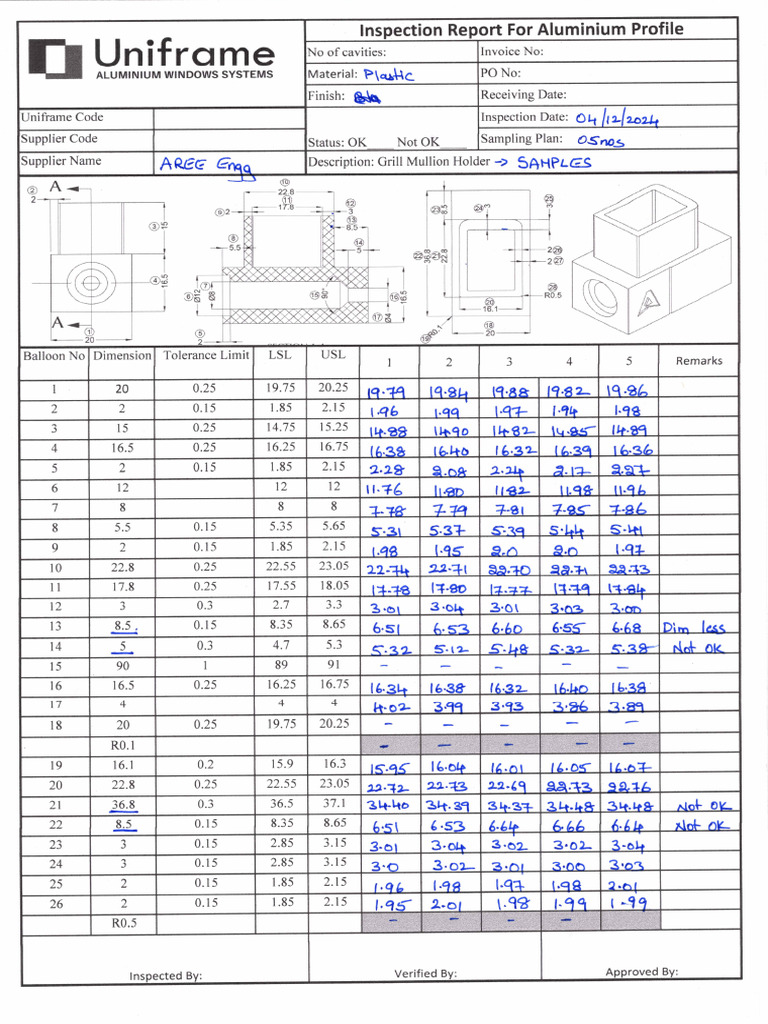 Uniframe
ALUMINIUM WINDOWS SYSTEMS
Inspection Report For Aluminium Profile
No of cavities: Invoice No:
Material: Plastic PO No:
Finish: Receiving Date:
Uniframe Code Inspection Date: 04/12/2024
Supplier Code Status: OK____ Not OK____ Sampling Plan: 05nos
Supplier Name AREE Engg Description: Grill Mullion Holder → SAMPLES
A
2
2
3
15
4
16.5
A
1
20
10
22.8
11
17.8
9
2
12
3
13
8.5
8
5.5
14
5
6
Ø12
7
Ø8
15
90°
16
16.5
17
Ø4
5
2
23
8.5
24
3
25
3
22
36.8
21
22.8
2 26
2 27
28
R0.5
20
16.1
18
20
R0.1
Balloon No Dimension Tolerance Limit LSL USL 1 2 3 4 5 Remarks
1 20 0.25 19.75 20.25 19.79 19.84 19.88 19.82 19.86
2 2 0.15 1.85 2.15 1.96 1.99 1.97 1.94 1.98
3 15 0.25 14.75 15.25 14.88 14.90 14.82 14.85 14.89
4 16.5 0.25 16.25 16.75 16.38 16.40 16.32 16.39 16.36
5 2 0.15 1.85 2.15 2.28 2.08 2.24 2.17 2.27
6 12 12 12 11.76 11.80 11.82 11.98 11.96
7 8 8 8 7.78 7.79 7.81 7.85 7.86
8 5.5 0.15 5.35 5.65 5.31 5.37 5.39 5.44 5.41
9 2 0.15 1.85 2.15 1.98 1.95 2.0 2.0 1.97
10 22.8 0.25 22.55 23.05 22.74 22.71 22.70 22.71 22.73
11 17.8 0.25 17.55 18.05 17.78 17.80 17.77 17.79 17.84
12 3 0.3 2.7 3.3 3.01 3.04 3.01 3.03 3.00
13 8.5 0.15 8.35 8.65 6.51 6.53 6.60 6.55 6.68 Dim less
14 5 0.3 4.7 5.3 5.32 5.12 5.48 5.32 5.38 Not OK
15 90 1 89 91 - - - - -
16 16.5 0.25 16.25 16.75 16.34 16.38 16.32 16.40 16.38
17 4 4 4 4.02 3.99 3.93 3.86 3.89
18 20 0.25 19.75 20.25 - - - - -
R0.1 - - - - -
19 16.1 0.2 15.9 16.3 15.95 16.04 16.01 16.05 16.07
20 22.8 0.25 22.55 23.05 22.72 22.73 22.69 22.73 22.76
21 36.8 0.3 36.5 37.1 34.40 34.39 34.37 34.48 34.48 Not OK
22 8.5 0.15 8.35 8.65 6.51 6.53 6.64 6.66 6.64 Not OK
23 3 0.15 2.85 3.15 3.01 3.04 3.02 3.02 3.04
24 3 0.15 2.85 3.15 3.0 3.02 3.01 3.00 3.03
25 2 0.15 1.85 2.15 1.96 1.98 1.97 1.98 2.01
26 2 0.15 1.85 2.15 1.95 2.01 1.98 1.99 1.99
R0.5 - - - -
Inspected By: Verified By: Approved By: